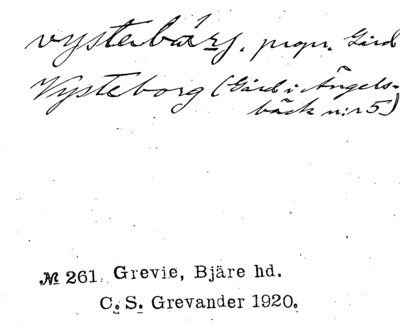 vystabårj. propr. Gård
Vysteborg (Gård i Ängels-
bäck n:r 5)
№ 261. Grevie, Bjäre hd.
C. S. Grevander 1920.